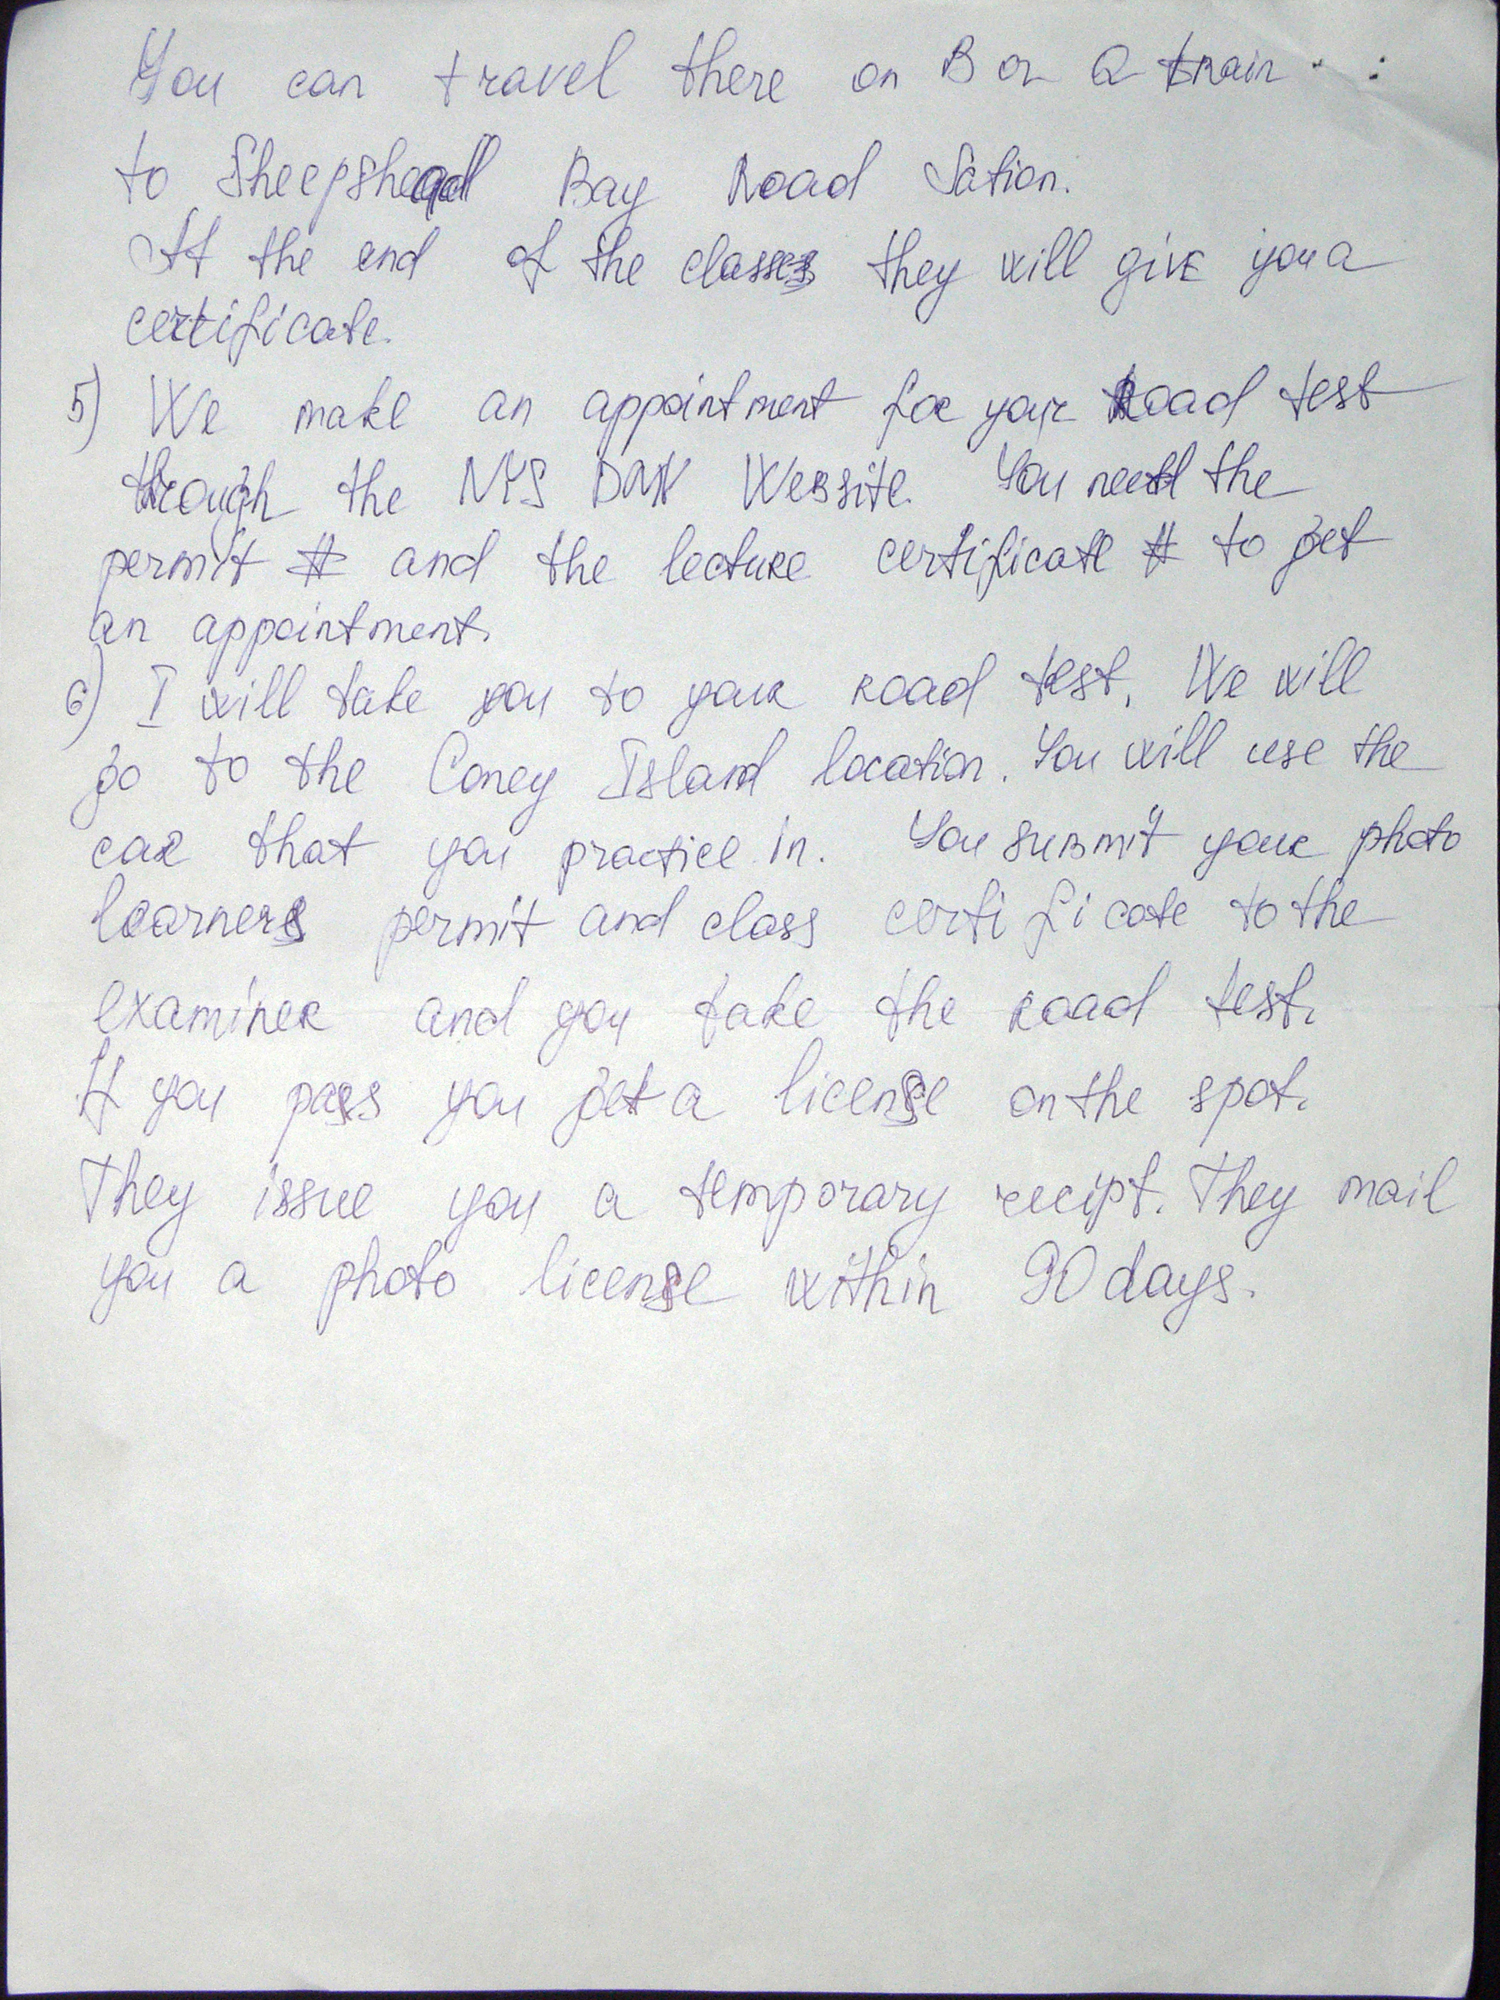 You can travel there on B or Q train
to Sheepshead Bay Road Sation.
At the end of the classes they will give you a
certificate.
5) We make an appointment for your Road test
through the NYS DMV Website. You need the
permit # and the lecture certificate # to get
an appointment.
6) I will take you to your road test. We will
go to the Coney Island location. You will use the
car that you practice in. You submit your photo
learners permit and class certificate to the
examiner and you take the road test.
If you pass you get a license on the spot.
They issue you a temporary recipt. They mail
you a photo license within 90 days.